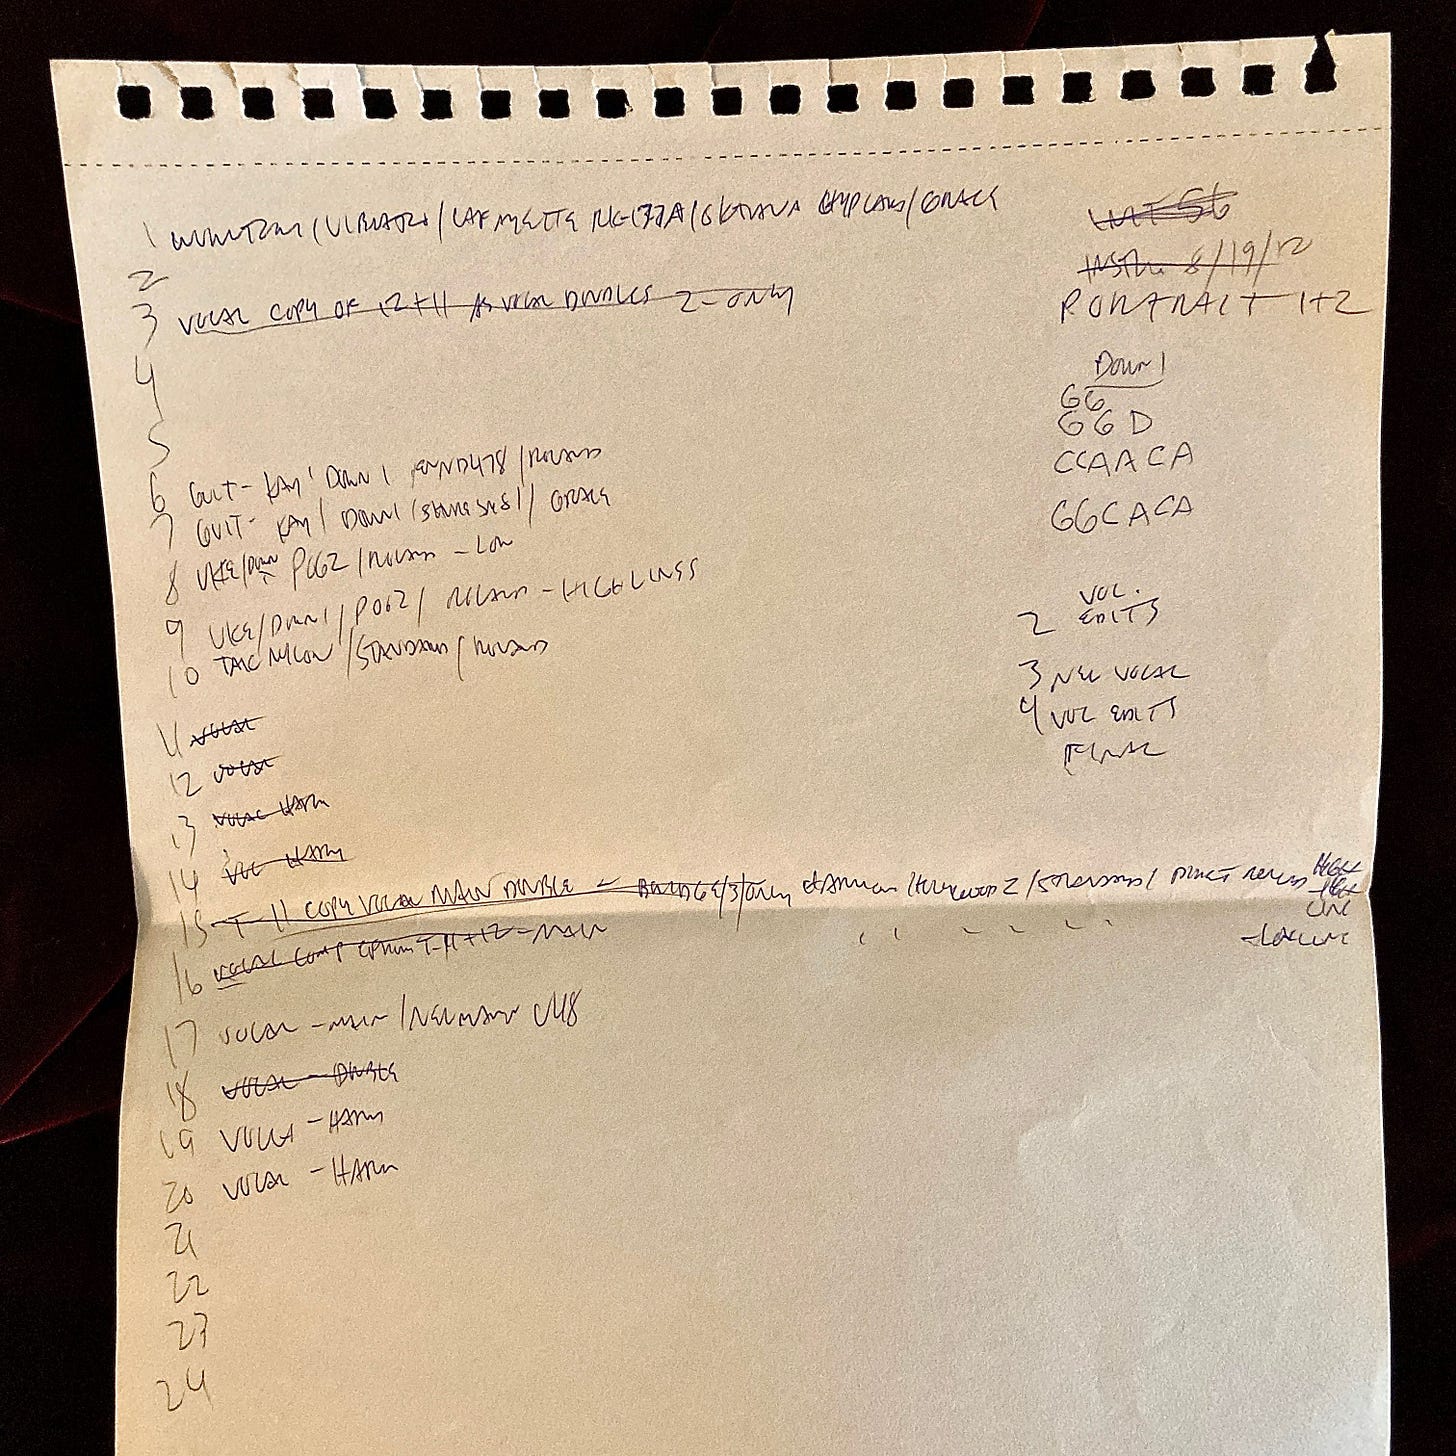 1 WURLITZER / VIBRATO / LAFAYETTE / GRACE
2
3 VOCAL COPY OF 12+11 AS VOCAL DOUBLES 2-ONLY
4
5
6 GUIT - KAY / DOWN 1 / ROLAND
7 GUIT - KAY / DOWN 1 / GRACE
8 UKE/DOWN POG2 / ROLAND - LOW
9 UKE/DOWN 1/POG2/ ROLAND - HIGH LINES
10 NYLON / STANDARD / ROLAND
11 VOCAL
12 VOCAL
13 VOCAL HARM
14 VOC HARM
15 T-11 COPY VOCAL MAIN DOUBLE - BRIDGE/3/ONLY / DIRECT HIGH LINE
16 VOCAL COMP FROM T-11+12 - MAIN " " " " - LOW LINE
17 VOCAL - MAIN / NEUMANN U48
18 VOCAL - DOUBLE
19 VOCAL - HARM
20 VOCAL - HARM
21
22
23
24
8/19/12
PORTRAIT 1+2
DOWN 1
GG
GGD
CCAACA
GGCACA
2 VOC. EDITS
3 NEW VOCAL
4 VOC EDITS
FINAL